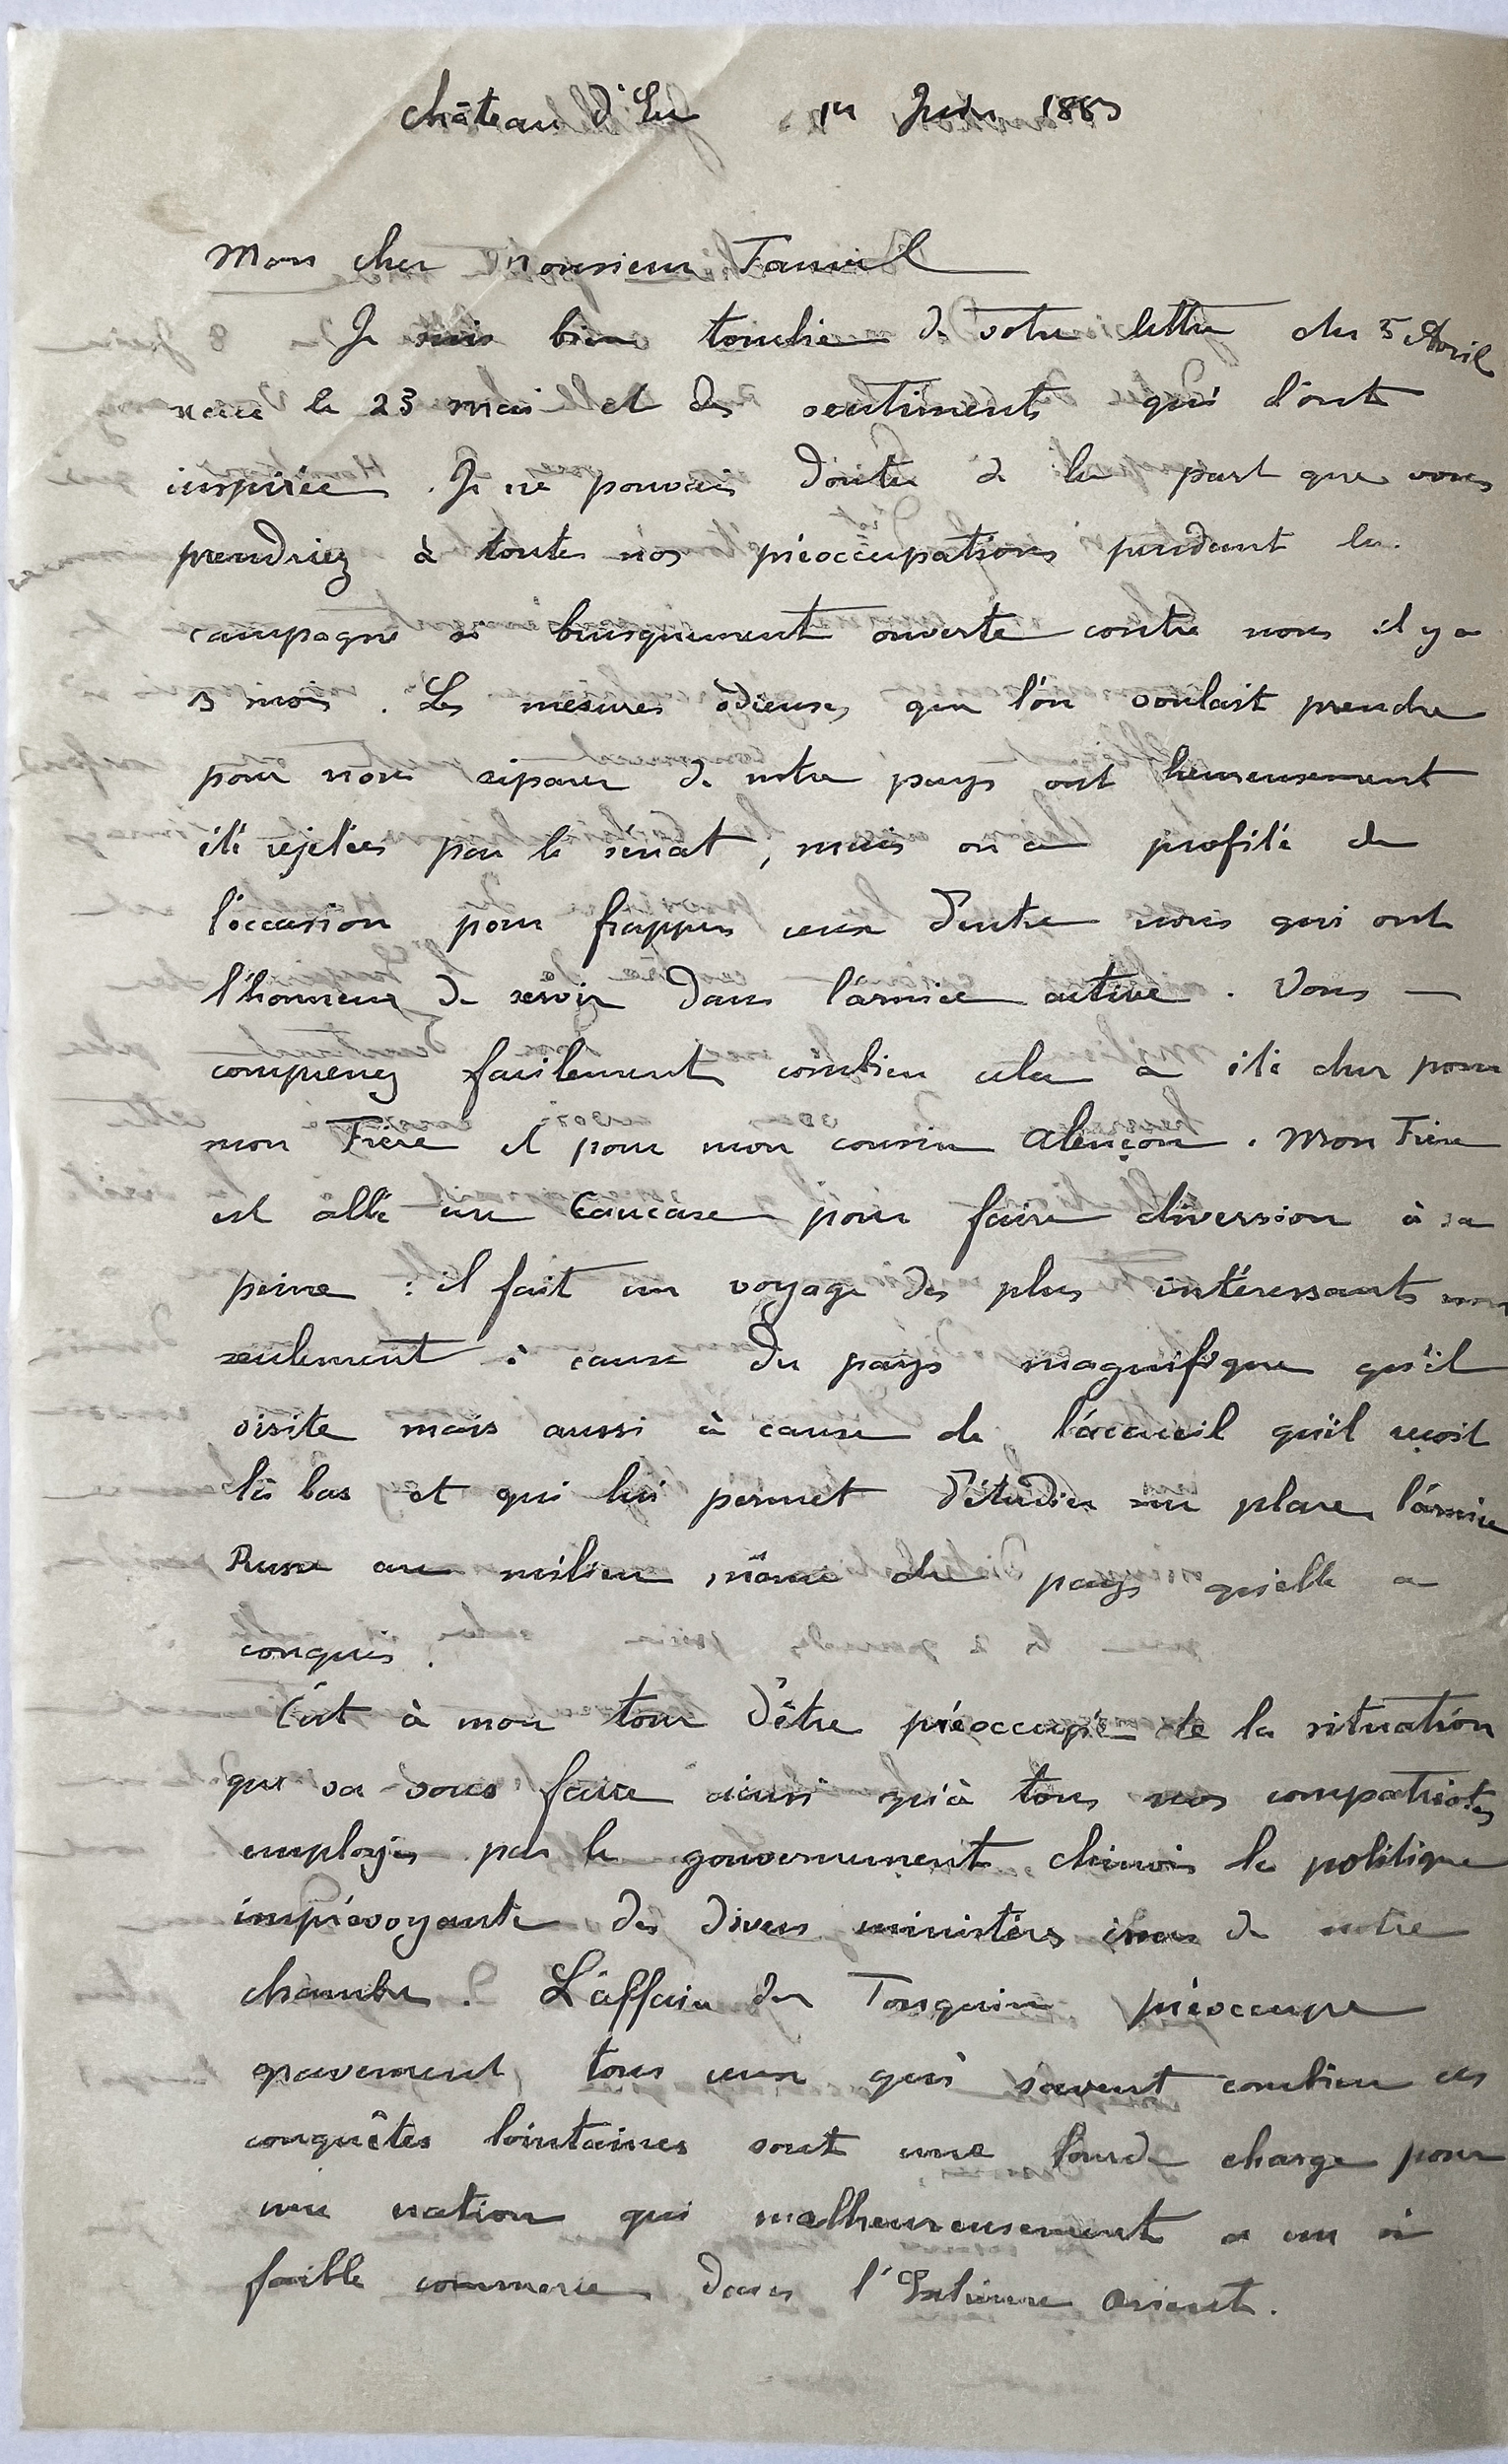 château d'Eu 1er Juin 1883
Mon cher Monsieur Fauvel
Je suis bien touché de votre lettre du 5 Avril
reçue le 23 mai et des sentiments qui l'ont
inspirée. Je ne pouvais douter de la part que vous
prendriez à toutes nos préoccupations pendant la
campagne si brusquement ouverte contre nous il y a
5 mois. Les mesures odieuses que l'on voulait prendre
pour nous séparer de notre pays ont heureusement
été rejetées par le sénat, mais on a profité de
l'occasion pour frapper ceux d'entre nous qui ont
l'honneur de servir dans l'armée active. Vous
comprenez facilement combien cela a été dur pour
mon Frère et pour mon cousin Alençon. Mon Frère
est allé au Caucase pour faire diversion à sa
peine : il fait un voyage des plus intéressants non
seulement à cause du pays magnifique qu'il
visite mais aussi à cause de l'accueil qu'il reçoit
là bas et qui lui permet d'étudier sur place l'armée
Russe au milieu même du pays qu'elle a
conquis.
C'est à mon tour d'être préoccupé de la situation
que va vous faire ainsi qu'à tous nos compatriotes
employés par le gouvernement chinois la politique
imprévoyante des divers ministères issus de notre
chambre. L'affaire du Tonquin préoccupe
gravement tous ceux qui savent combien ces
conquêtes lointaines sont une lourde charge pour
une nation qui malheureusement a un si
faible commerce dans l'Extrême Orient.